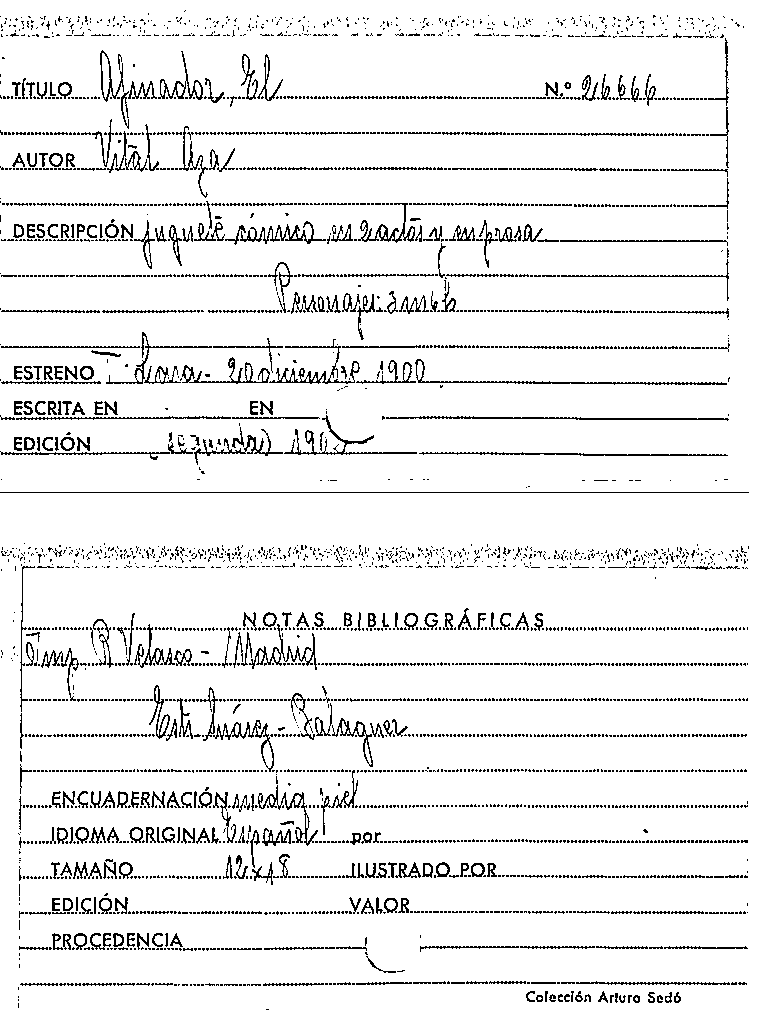 TÍTULO Afinador, El N.º 26666
AUTOR Vital Aza
DESCRIPCIÓN juguete cómico en 2 actos y en prosa
Personajes: 3 m 6 h
ESTRENO T. Lara - 20 diciembre 1900
ESCRITA EN EN
EDICIÓN segunda
NOTAS BIBLIOGRÁFICAS
Imp. R Velasco - Madrid
Suárez - Balaguer
ENCUADERNACIÓN media piel
IDIOMA ORIGINAL Español por
TAMAÑO 12 x 18 ILUSTRADO POR
EDICIÓN VALOR
PROCEDENCIA
Colección Arturo Sedó